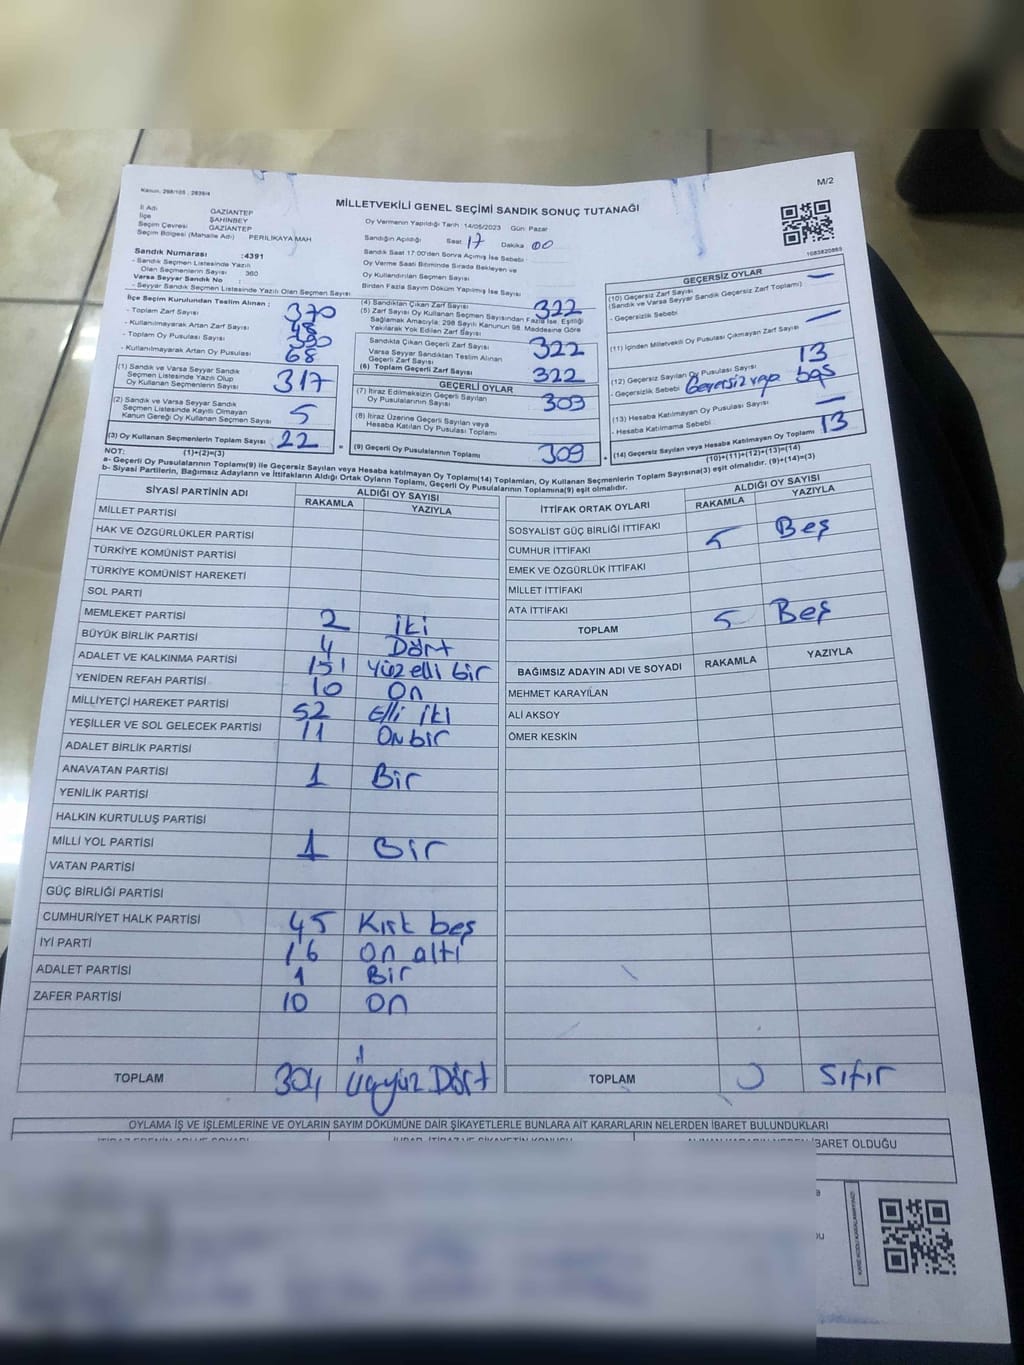 Kanun. 298/105 , 2839/4
M/2
MİLLETVEKİLİ GENEL SEÇİMİ SANDIK SONUÇ TUTANAĞI
İl Adı GAZİANTEP
İlçe ŞAHİNBEY
Seçim Çevresi GAZİANTEP
Seçim Bölgesi (Mahalle Adı) PERİLİKAYA MAH
Oy Vermenin Yapıldığı Tarih :14/05/2023 Gün Pazar
Sandığın Açıldığı Saat 17 Dakika 00
Sandık Saat 17:00'den Sonra Açılmış İse Sebebi
Oy Verme Saati Bitiminde Sırada Bekleyen ve
Oy Kullandırılan Seçmen Sayısı
Birden Fazla Sayım Döküm Yapılmış İse Sayısı
Sandık Numarası :4391
- Sandık Seçmen Listesinde Yazılı
Olan Seçmenlerin Sayısı 360
Varsa Seyyar Sandık No :
- Seyyar Sandık Seçmen Listesinde Yazılı Olan Seçmen Sayısı
İlçe Seçim Kurulundan Teslim Alınan :
- Toplam Zarf Sayısı 370
- Kullanılmayarak Artan Zarf Sayısı 48
- Toplam Oy Pusulası
- Kullanılmayarak Artan Oy Pusulası 68
(1) Sandık ve Varsa Seyyar Sandık
Seçmen Listesinde Yazılı Olup
Oy Kullanan Seçmenlerin Sayısı 317
(2) Sandık ve Varsa Seyyar Sandık
Seçmen Listesinde Kayıtlı Olmayan
Kanun Gereği Oy Kullanan Seçmen Sayısı 5
(3) Oy Kullanan Seçmenlerin Toplam Sayısı 22
(1)+(2)=(3)
(4) Sandıktan Çıkan Zarf Sayısı 322
(5) Zarf Sayısı Oy Kullanan Seçmen Sayısından Fazla İse, Eşitliği
Sağlamak Amacıyla; 298 Sayılı Kanunun 98. Maddesine Göre
Yakılarak Yok Edilen Zarf Sayısı
Sandıkta Çıkan Geçerli Zarf Sayısı 322
Varsa Seyyar Sandıktan Teslim Alınan
Geçerli Zarf Sayısı
(6) Toplam Geçerli Zarf Sayısı 322
GEÇERLİ OYLAR
(7) İtiraz Edilmeksizin Geçerli Sayılan
Oy Pusulalarının Sayısı 309
(8) İtiraz Üzerine Geçerli Sayılan veya
Hesaba Katılan Oy Pusulası Toplamı
(9) Geçerli Oy Pusulalarının Toplamı 309
1683820865
GEÇERSİZ OYLAR
(10) Geçersiz Zarf Sayısı —
(Sandık ve Varsa Seyyar Sandık Geçersiz Zarf Toplamı)
- Geçersizlik Sebebi
(11) İçinden Milletvekili Oy Pusulası Çıkmayan Zarf Sayısı —
(12) Geçersiz Sayılan Oy Pusulası Sayısı 13
- Geçersizlik Sebebi Geçersiz veya boş
(13) Hesaba Katılmayan Oy Pusulası Sayısı —
- Hesaba Katılmama Sebebi
(14) Geçersiz Sayılan veya Hesaba Katılmayan Oy Toplamı 13
(10)+(11)+(12)+(13)=(14)
NOT:
a- Geçerli Oy Pusulalarının Toplamı(9) ile Geçersiz Sayılan veya Hesaba katılmayan Oy Toplamı(14) Toplamları, Oy Kullanan Seçmenlerin Toplam Sayısına(3) eşit olmalıdır. (9)+(14)=(3)
b- Siyasi Partilerin, Bağımsız Adayların ve İttifakların Aldığı Ortak Oyların Toplamı, Geçerli Oy Pusulalarının Toplamına(9) eşit olmalıdır.
SİYASİ PARTİNİN ADI ALDIĞI OY SAYISI
RAKAMLA YAZIYLA
MİLLET PARTİSİ
HAK VE ÖZGÜRLÜKLER PARTİSİ
TÜRKİYE KOMÜNİST PARTİSİ
TÜRKİYE KOMÜNİST HAREKETİ
SOL PARTİ
MEMLEKET PARTİSİ 2 iki
BÜYÜK BİRLİK PARTİSİ 4 Dört
ADALET VE KALKINMA PARTİSİ 151 Yüz elli bir
YENİDEN REFAH PARTİSİ 10 On
MİLLİYETÇİ HAREKET PARTİSİ 52 Elli iki
YEŞİLLER VE SOL GELECEK PARTİSİ 11 On bir
ADALET BİRLİK PARTİSİ
ANAVATAN PARTİSİ 1 Bir
YENİLİK PARTİSİ
HALKIN KURTULUŞ PARTİSİ
MİLLİ YOL PARTİSİ 1 Bir
VATAN PARTİSİ
GÜÇ BİRLİĞİ PARTİSİ
CUMHURİYET HALK PARTİSİ 45 Kırk beş
İYİ PARTİ 16 on altı
ADALET PARTİSİ 1 Bir
ZAFER PARTİSİ 10 on
TOPLAM 304 Üçyüz Dört
İTTİFAK ORTAK OYLARI ALDIĞI OY SAYISI
RAKAMLA YAZIYLA
SOSYALİST GÜÇ BİRLİĞİ İTTİFAKI
CUMHUR İTTİFAKI 5 Beş
EMEK VE ÖZGÜRLÜK İTTİFAKI
MİLLET İTTİFAKI
ATA İTTİFAKI
TOPLAM 5 Beş
BAĞIMSIZ ADAYIN ADI VE SOYADI RAKAMLA YAZIYLA
MEHMET KARAYILAN
ALİ AKSOY
ÖMER KESKİN
TOPLAM 0 Sıfır
OYLAMA İŞ VE İŞLEMLERİNE VE OYLARIN SAYIM DÖKÜMÜNE DAİR ŞİKAYETLERLE BUNLARA AİT KARARLARIN NELERDEN İBARET BULUNDUKLARI
İBARET OLDUĞU